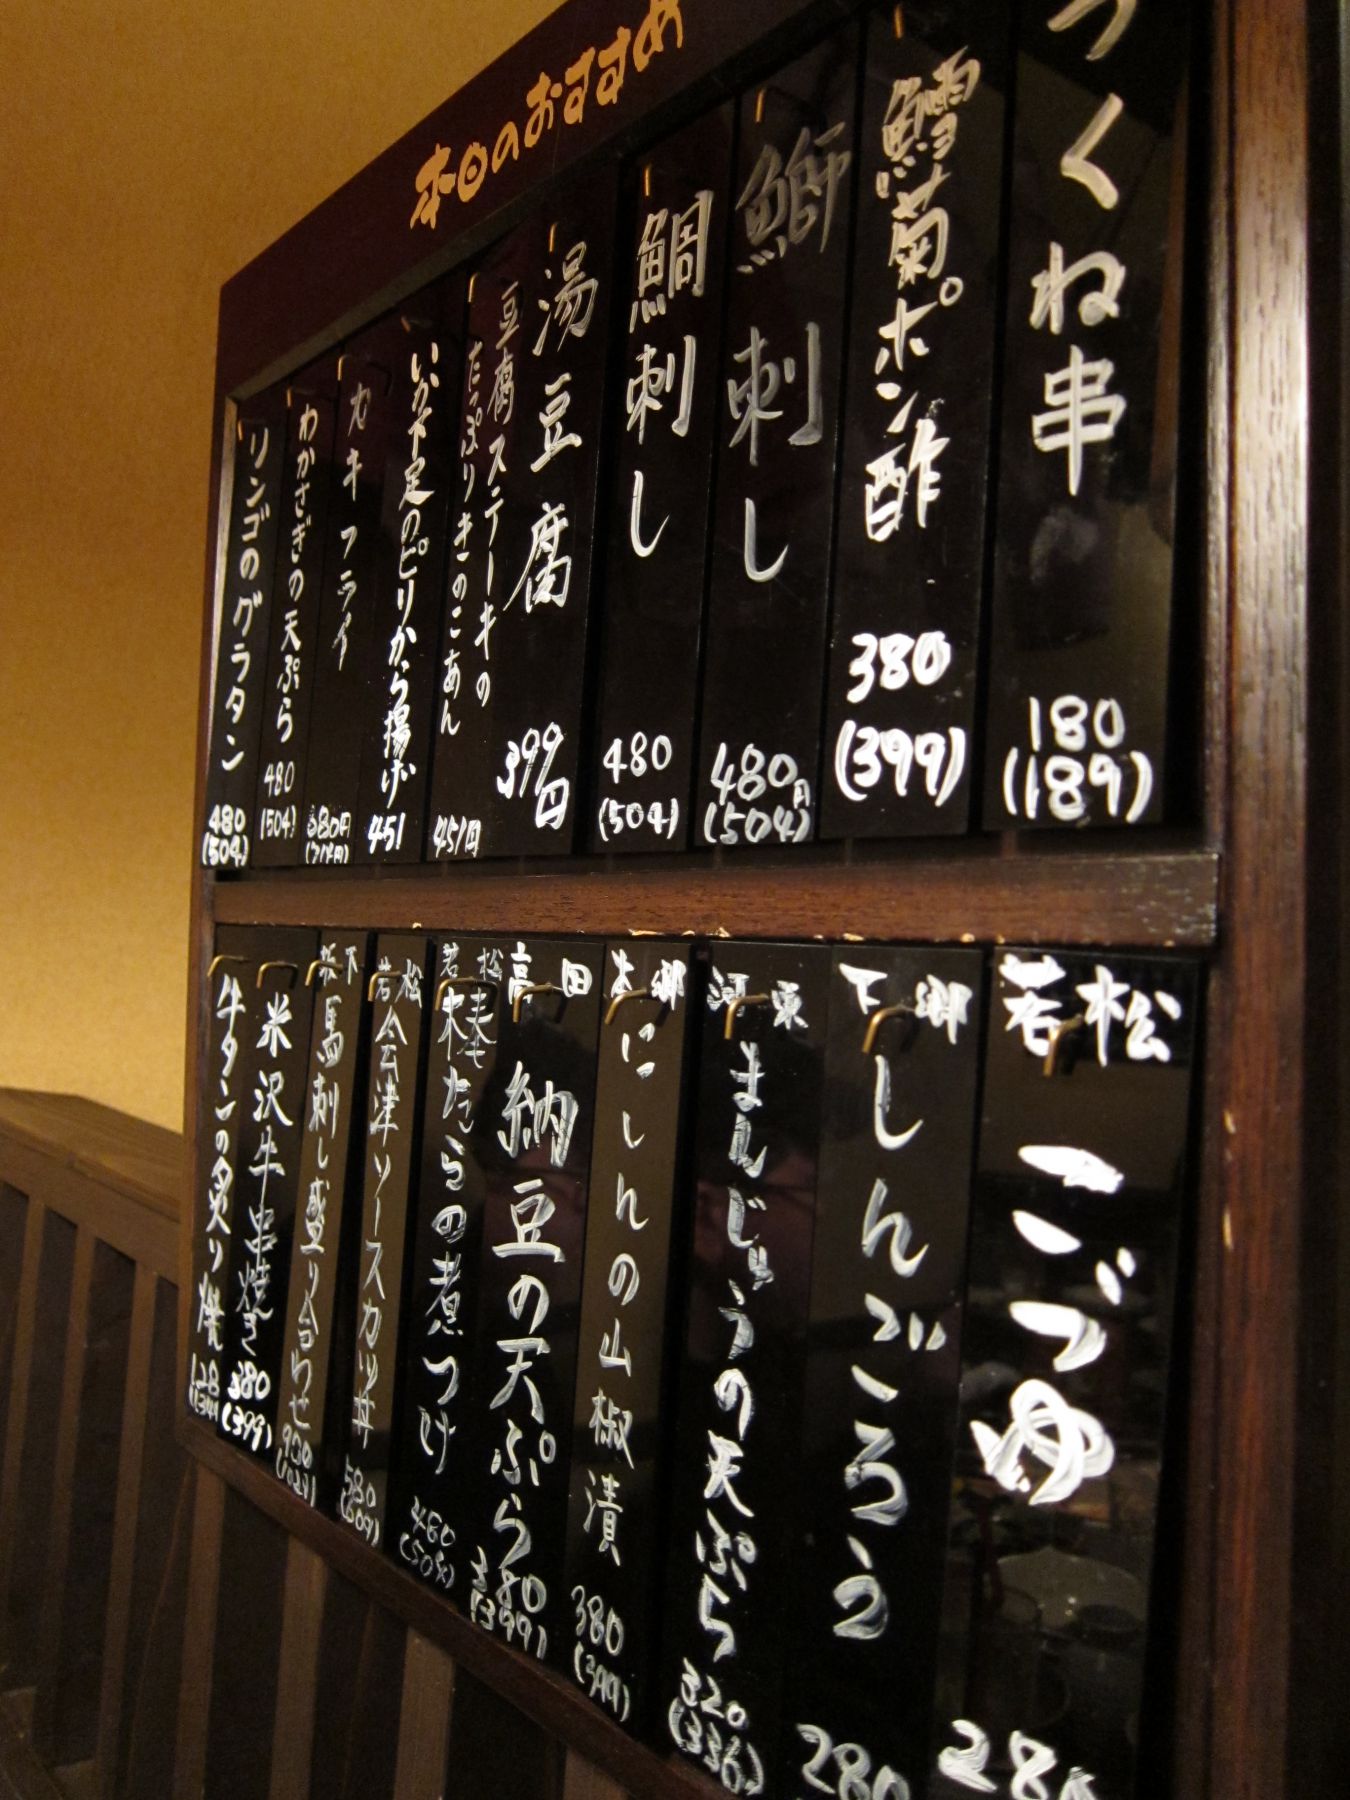 本日のおすすめ
つくね串
180
(189)
鱈菊ポン酢
380
(399)
鰤刺し
480円
(504)
鯛刺し
480
(504)
湯豆腐
399円
豆腐ステーキの
たっぷりきのこあん
451円
いか下足のピリから揚げ
451
カキフライ
わかさぎの天ぷら
480
(504)
リンゴのグラタン
480
(504)
若松
こづゆ
280
下郷
しんごろう
280
河東
まんじゅうの天ぷら
320
(336)
本郷
にしんの山椒漬
380
(399)
高田
納豆の天ぷら
380
(399)
若松
棒たらの煮つけ
480
(504)
若松
会津ソースカツ丼
580
(609)
馬刺し盛り合わせ
米沢牛串焼き
380
(399)
牛タンの炙り焼